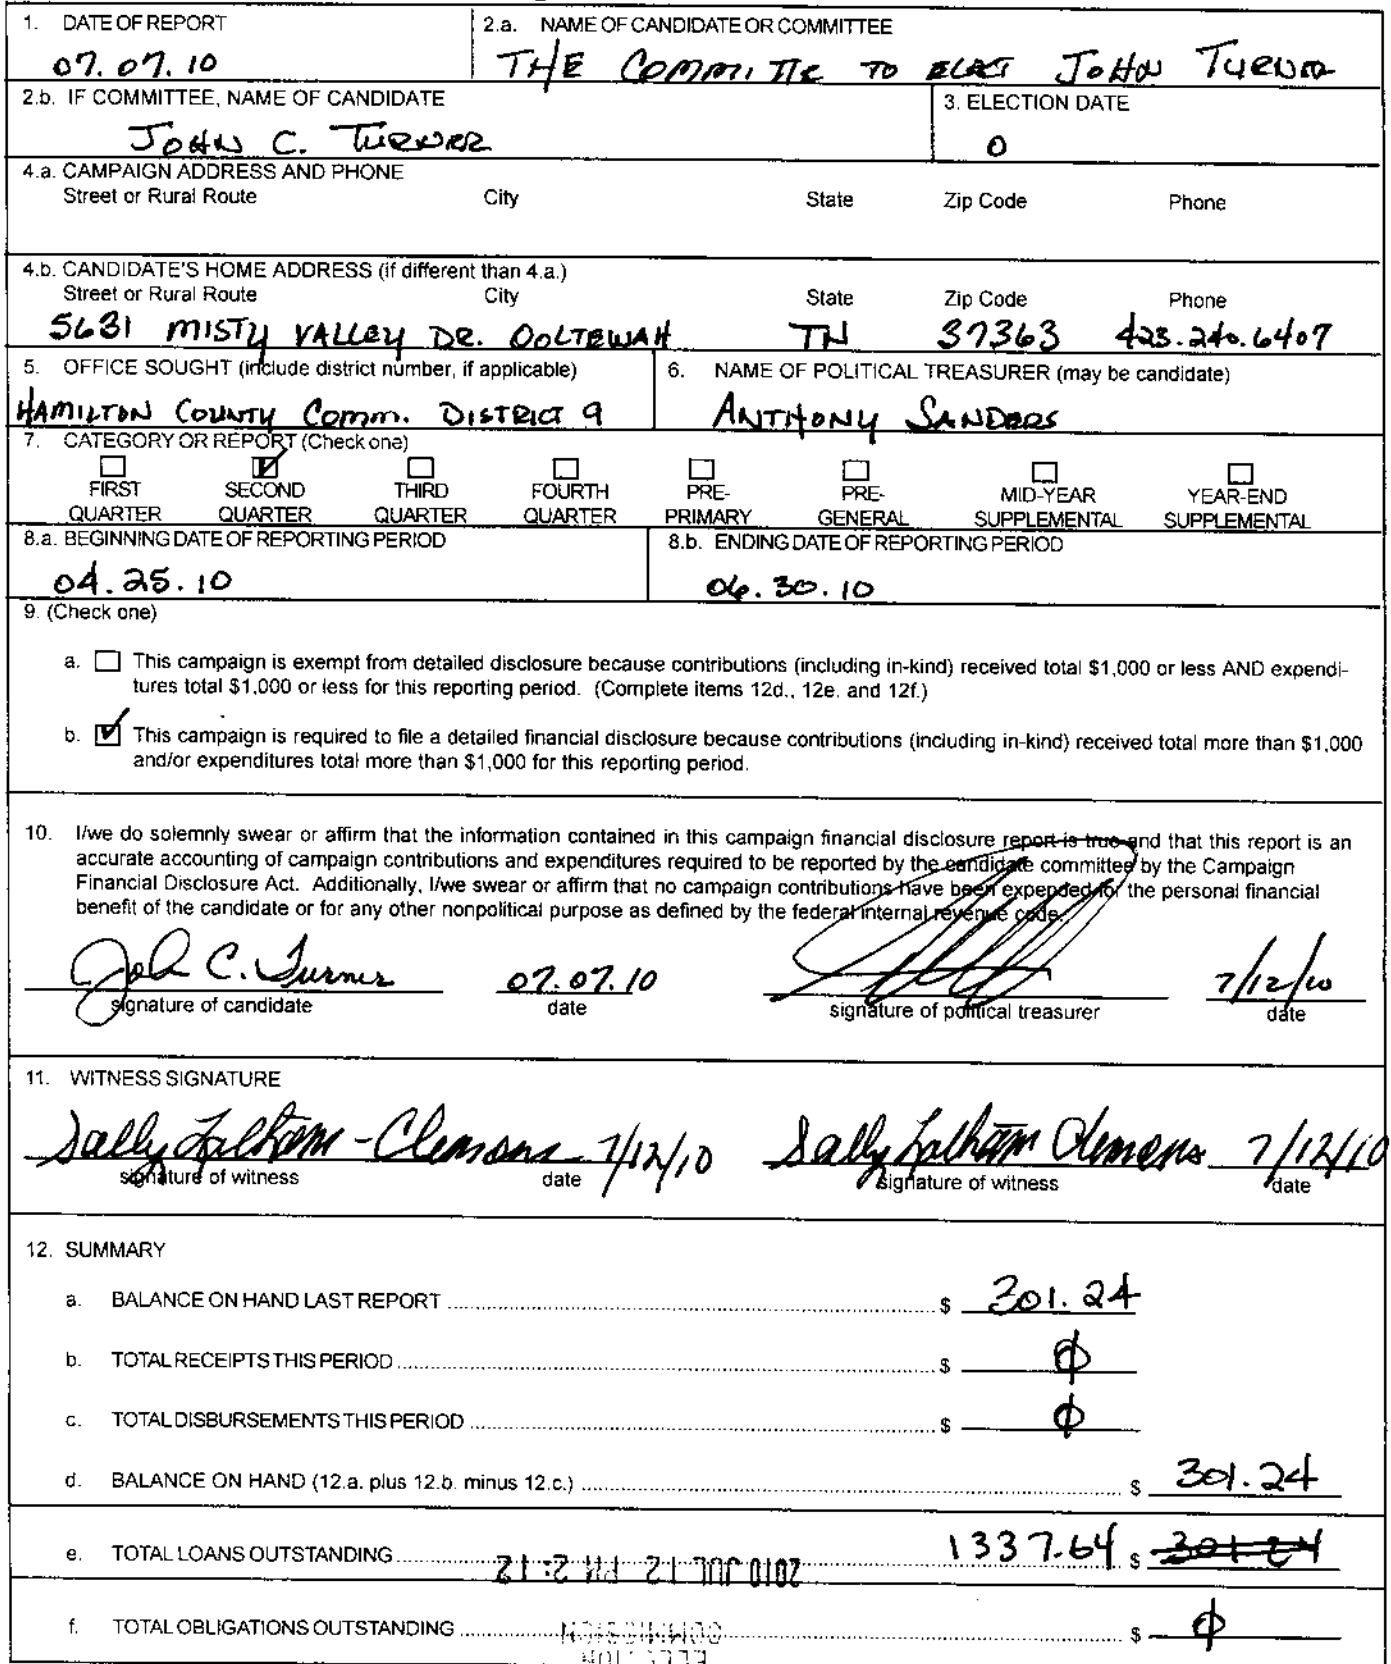 1. DATE OF REPORT
07.07.10
2.a. NAME OF CANDIDATE OR COMMITTEE
THE COMMITTE TO ELECT JOHN TURNER
2.b. IF COMMITTEE, NAME OF CANDIDATE
JOHN C. TURNER
3. ELECTION DATE
0
4.a. CAMPAIGN ADDRESS AND PHONE
Street or Rural Route City State Zip Code Phone
4.b. CANDIDATE'S HOME ADDRESS (if different than 4.a.)
Street or Rural Route City State Zip Code Phone
5631 MISTY VALLEY DR. OOLTEWAH TN 37363 423.240.6407
5. OFFICE SOUGHT (include district number, if applicable)
HAMILTON COUNTY Comm. DISTRICT 9
6. NAME OF POLITICAL TREASURER (may be candidate)
ANTHONY SANDERS
7. CATEGORY OR REPORT (Check one)
FIRST QUARTER
SECOND QUARTER
THIRD QUARTER
FOURTH QUARTER
PRE-PRIMARY
PRE-GENERAL
MID-YEAR SUPPLEMENTAL
YEAR-END SUPPLEMENTAL
8.a. BEGINNING DATE OF REPORTING PERIOD
04.25.10
8.b. ENDING DATE OF REPORTING PERIOD
06.30.10
9. (Check one)
a. This campaign is exempt from detailed disclosure because contributions (including in-kind) received total $1,000 or less AND expendi-
tures total $1,000 or less for this reporting period. (Complete items 12d., 12e. and 12f.)
b. This campaign is required to file a detailed financial disclosure because contributions (including in-kind) received total more than $1,000
and/or expenditures total more than $1,000 for this reporting period.
10. I/we do solemnly swear or affirm that the information contained in this campaign financial disclosure report is true and that this report is an
accurate accounting of campaign contributions and expenditures required to be reported by the candidate committee by the Campaign
Financial Disclosure Act. Additionally, I/we swear or affirm that no campaign contributions have been expended for the personal financial
benefit of the candidate or for any other nonpolitical purpose as defined by the federal internal revenue code.
John C. Turner 07.07.10 7/12/10
signature of candidate date signature of political treasurer date
11. WITNESS SIGNATURE
Sally Latham-Clemons 7/12/10 Sally Latham Clemons 7/12/10
signature of witness date signature of witness date
12. SUMMARY
a. BALANCE ON HAND LAST REPORT $ 301.24
b. TOTAL RECEIPTS THIS PERIOD $ 0
c. TOTAL DISBURSEMENTS THIS PERIOD $ 0
d. BALANCE ON HAND (12.a. plus 12.b. minus 12.c.) $ 301.24
e. TOTAL LOANS OUTSTANDING 1337.64 $ 301.24
2010 JUL 12 PM 2:12
f. TOTAL OBLIGATIONS OUTSTANDING $ 0
COMMISSION
ELECTION